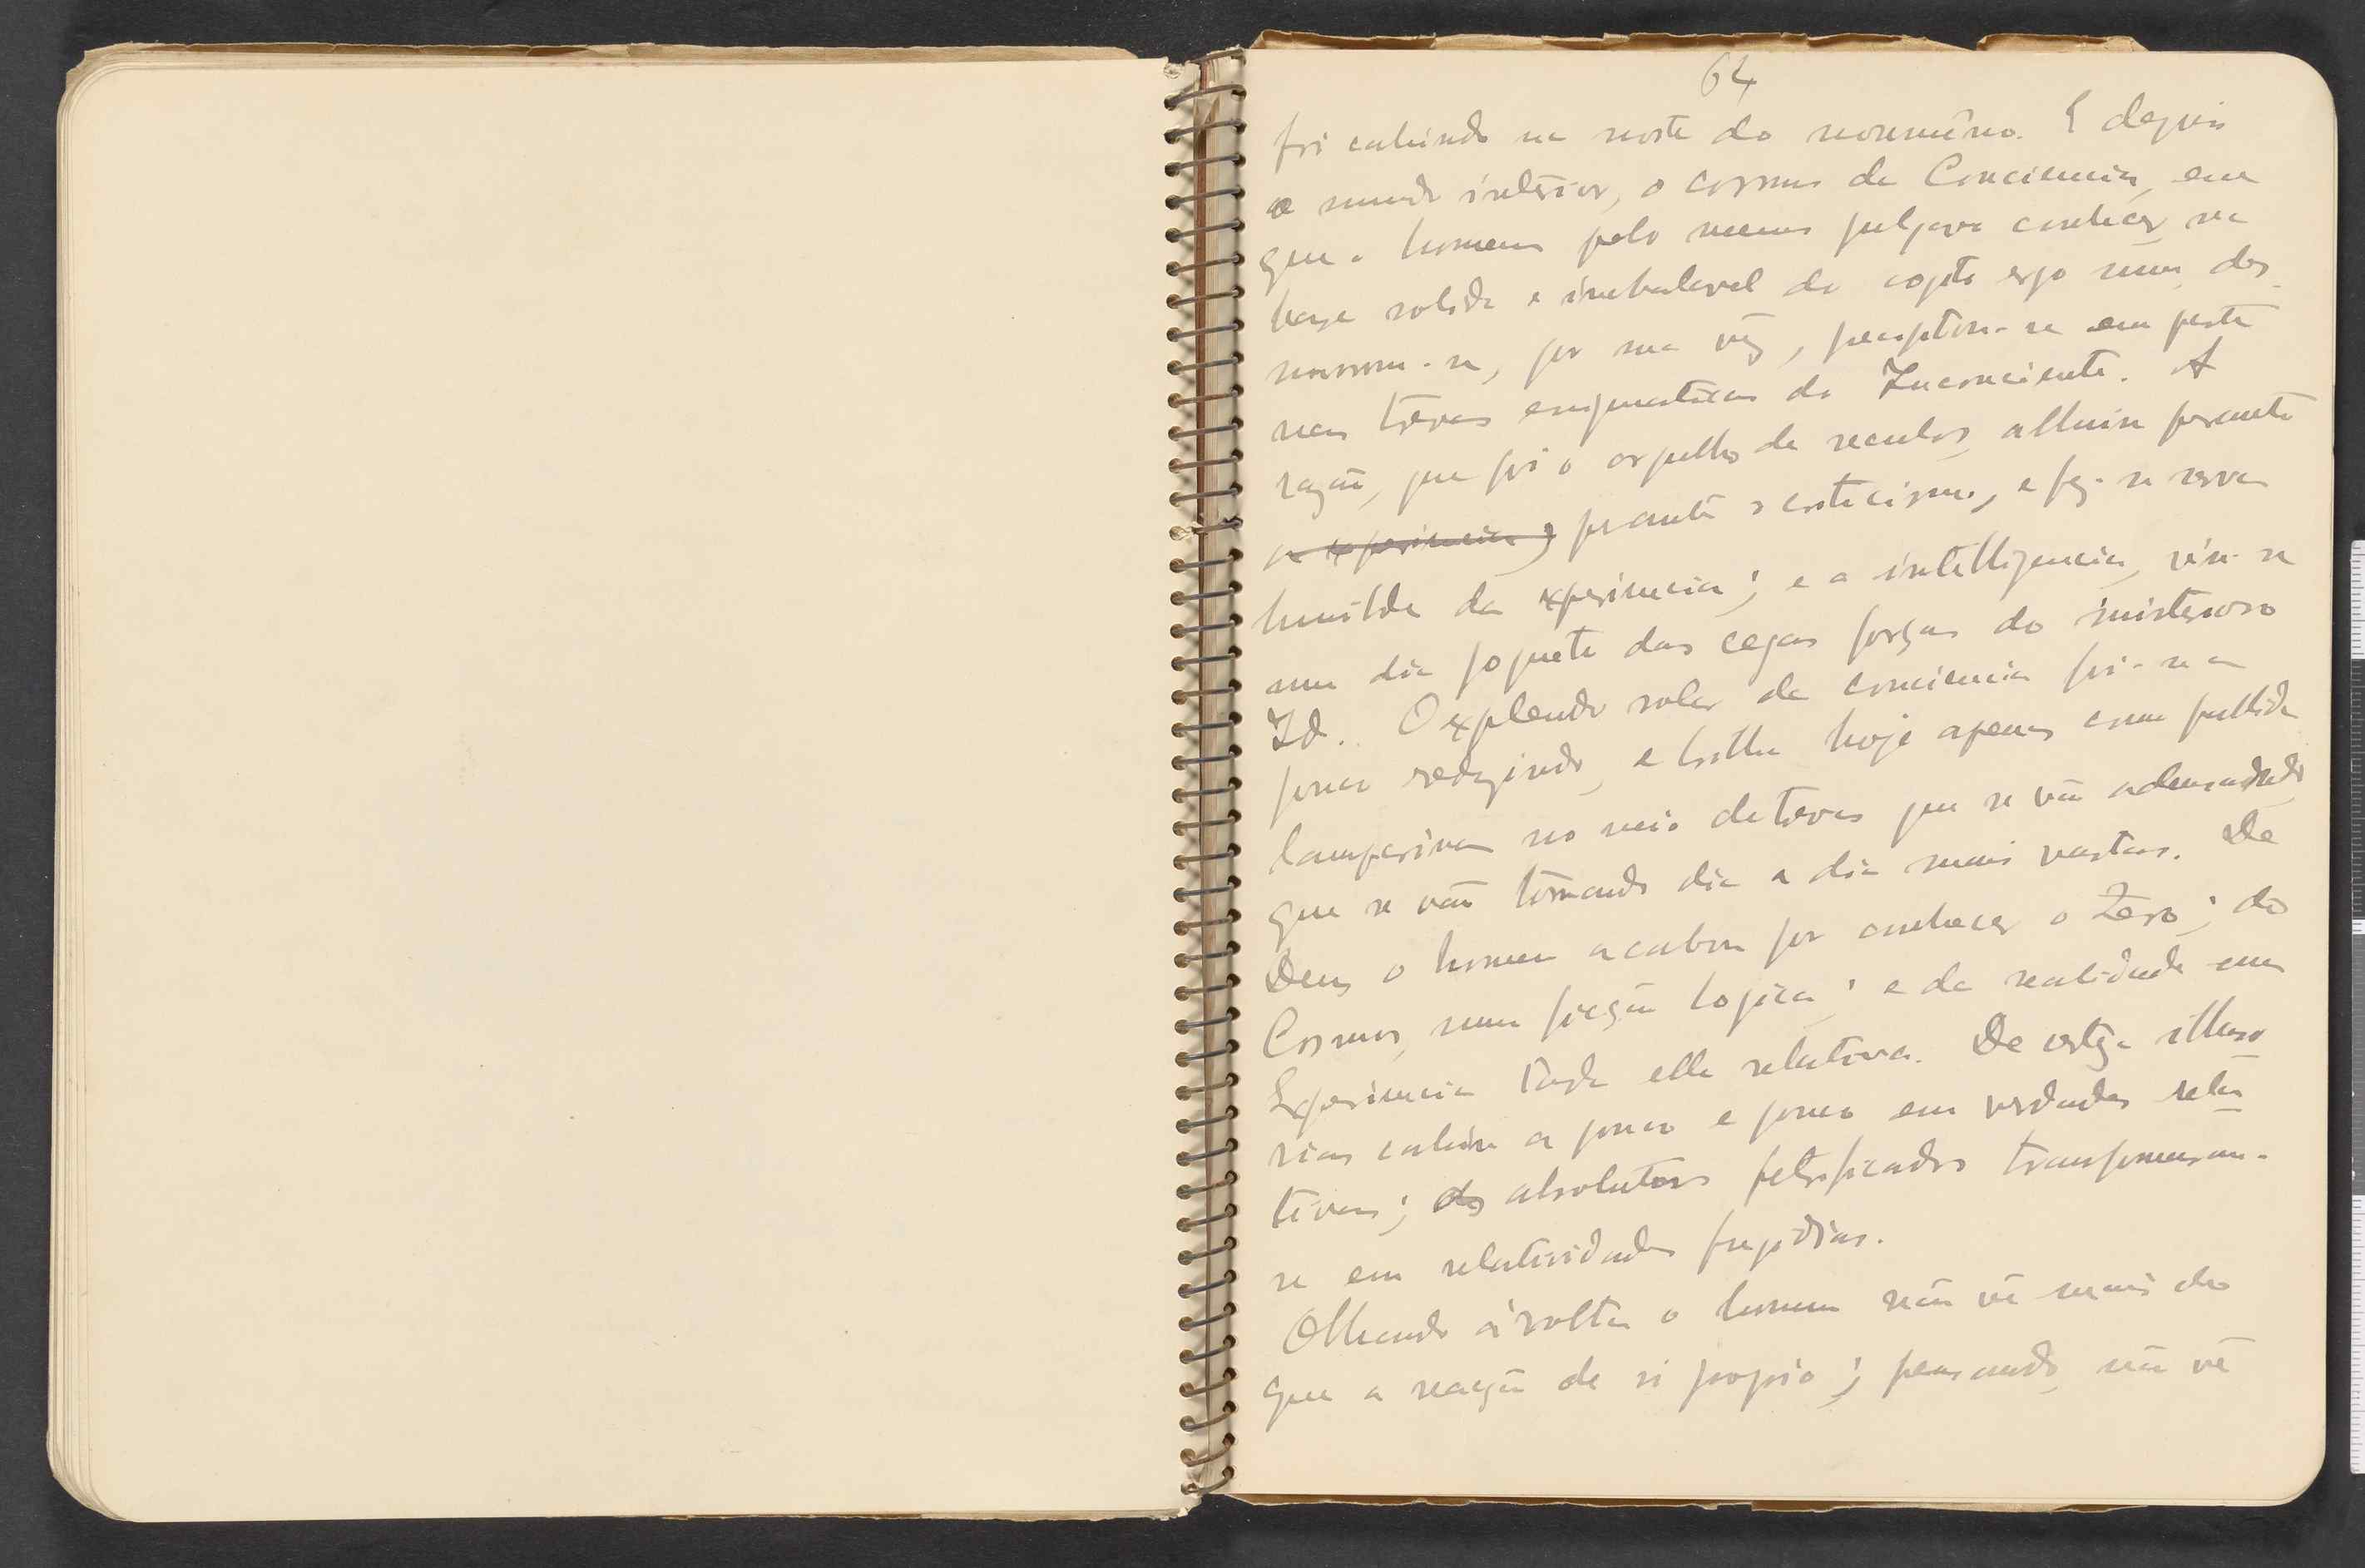 64
foi cahindo na noite do noumêno. E depois
o mundo intérior, o cosmos da Conciencia, em
que o homem pelo menos julgava conhecer, na
base solida e inabalavel do cogito ergo sum, des-
moronou-se, por sua vêz, precipitou-se em parte
nas trévas enigmaticas do Inconciente. A
razão, que foi o orgulho de seculos, alluiu perante
a experiencia, perante o criticismo, e fez-se serva
humilde da experiencia; e a intelligencia, viu-se
um dia joguete das cegas forças do misterioso
Id. O explendor solar da conciencia foi-se a
pouco reduzindo, e brilha hoje apenas como pallida
lamparina no meio de trevas que se vão adensando,
que se vão tornando dia a dia mais vastas. De
Deus o homem acabou por conhecer o Zero; do
Cosmos, uma ficção logica; e da realidade uma
Experiencia toda ella relativa. De certeza illuso
rias cahiu a pouco e pouco em verdades rela
tivas; os absolutos petrificados transformaram-
se em relatividades fugidias.
Olhando á volta o homem não vê mais do
que a reacção de si proprio; pensando, não vê